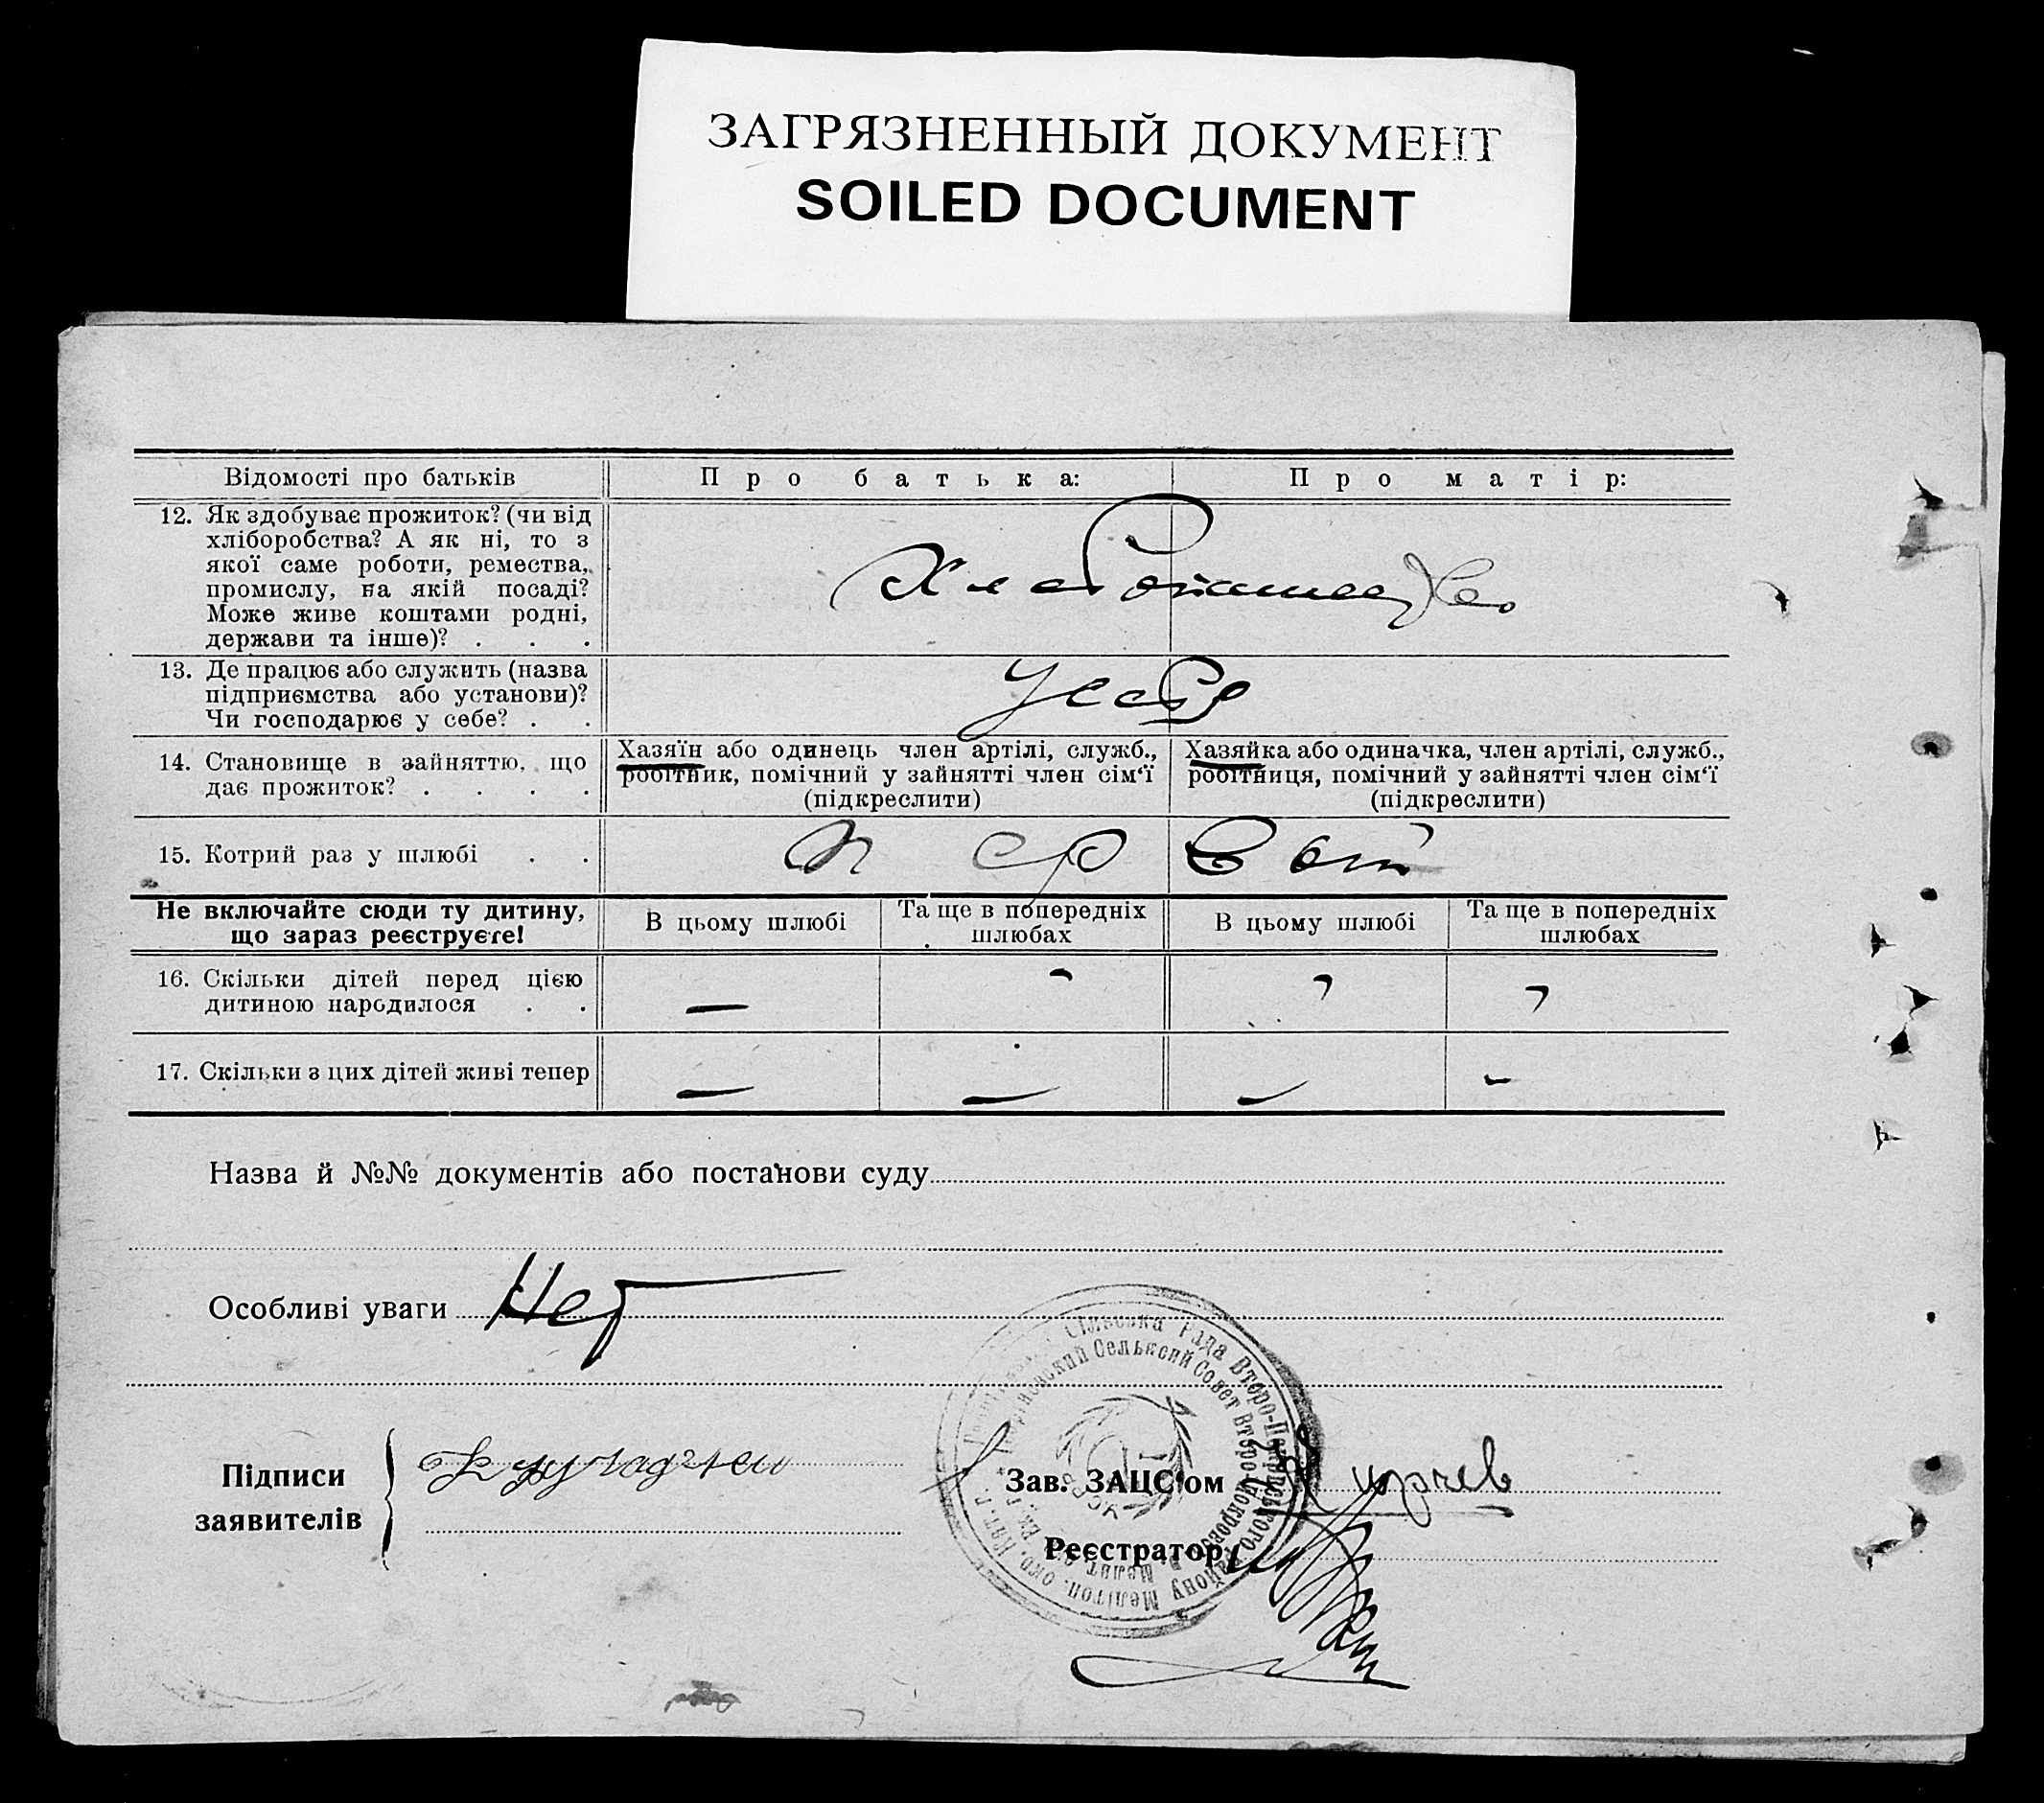 ЗАГРЯЗНЕННЫЙ ДОКУМЕНТ
SOILED DOCUMENT
Відомості про батьків
Про батька:
Про матір:
12. Як здобуває прожиток? (чи від
хліборобства? А як ні, то з
якої саме роботи, ремества,
промислу, на якій посаді?
Може живе коштами родні,
держави та інше)? . . .
Хлебопашество
13. Де працює або служить (назва
підприємства або установи)?
Чи господарює у себе? . .
У себя
14. Становище в зайняттю, що
дає прожиток? . . . .
Хазяїн або одинець член артілі, служб.,
робітник, помічний у зайнятті член сім‘ї
(підкреслити)
Хазяйка або одиначка, член артілі, служб.,
робітниця, помічний у зайнятті член сім‘ї
(підкреслити)
15. Котрий раз у шлюбі . .
первый
Не включайте сюди ту дитину,
що зараз реєструєте!
В цьому шлюбі
Та ще в попередніх
шлюбах
В цьому шлюбі
Та ще в попередніх
шлюбах
16. Скільки дітей перед цією
дитиною народилося . .
— - - -
17. Скільки з цих дітей живі тепер
— — — -
Назва й №№ документів або постанови суду
Особливі уваги Нет
Підписи
заявителів
Зав. ЗАЦС‘ом
Реєстратор
Сільська Рада Второ-Покровського Району Мелітоп. окр.
Сельский Совет Второ-Покровск
УСРР